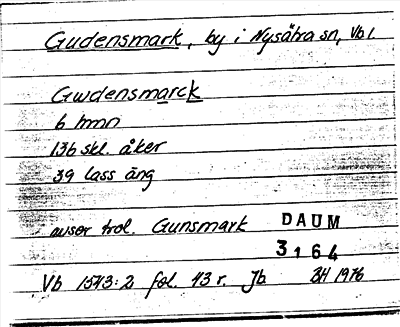 Gudensmark, by i Nysätra sn, Vb l.
Gwdensmarck
6 hmn
136 skl. åker
39 lass äng
avser trol. Gunsmark DAUM
3164
Vb 1543:2 fol. 43 r. Jb. BH 1976